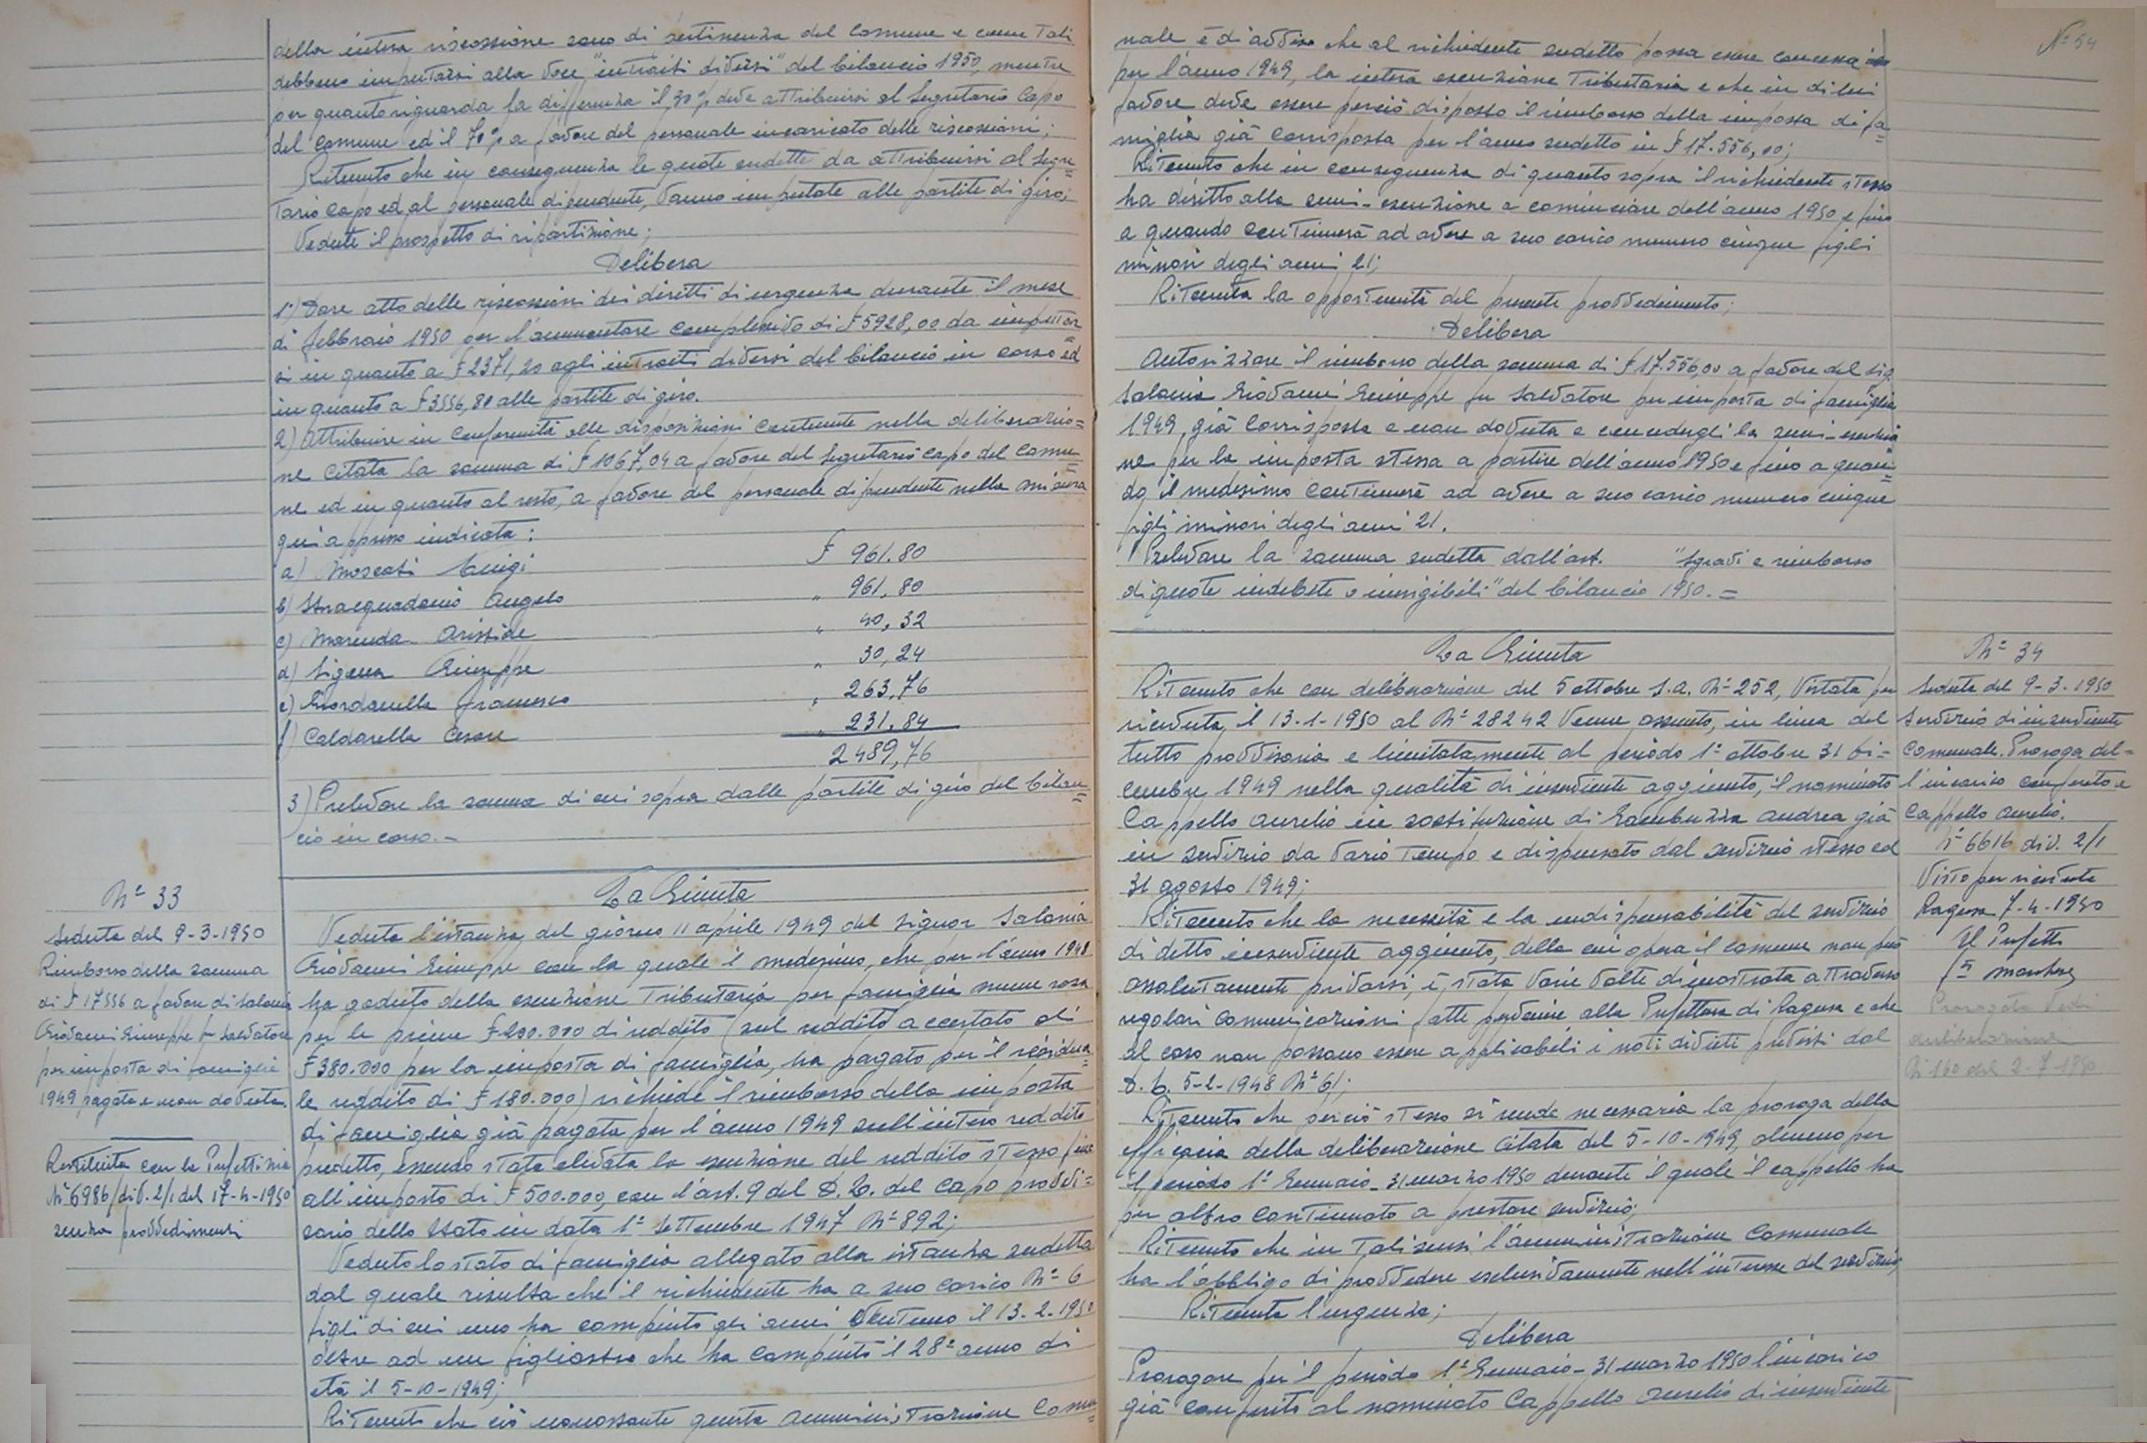 della intera riscossione sono di pertinenza del Comune e come tali
debbono imputarsi alla voce "introiti diversi" del bilancio 1950, mentre
per quanto riguarda la differenza il 30% deve attribuirsi al Segretario Capo
del Comune ed il 70% a favore del personale incaricato delle riscossioni;
Ritenuto che in conseguenza le quote sudette da attribuirsi al Segre=
tario Capo ed al personale dipendente, vanno imputate alle partite di giro;
Vedute il prospetto di ripartizione;
Delibera
1°) Dare atto delle riscossioni dei diritti di urgenza durante il mese
di febbraio 1950 per l'ammontare complessivo di £ 5928,00 da imputar=
si in quanto a £ 2371,20 agli introiti diversi del bilancio in corso ed
in quanto a £ 3556,80 alle partite di giro.
2) Attribuire in conformità alle disposizioni contenute nella deliberazio=
ne citata la somma di £ 1067,04 a favore del Segretario Capo del Comu=
ne ed in quanto al resto, a favore del personale dipendente nella misura
qui appresso indicata:
a) Moscati Luigi £ 961.80
b) Stracquadanio Angelo " 961,80
c) Marinda Aristide " 40,32
d) Sigona Giuseppe " 30,24
e) Giordanella Francesco " 263,76
f) Caldarella Cesare " 231.84
2489,76
3) Prelevare la somma di cui sopra dalle partite di giro del bilan=
cio in corso. -
N° 33
Seduta del 9-3-1950
Rimborso della somma
di £ 17556 a favore di Salonia
Giovanni Giuseppe fu Salvatore
per imposta di famiglia
1949 pagata e non dovuta.
Restituita con la Prefettizia
N° 6986/div. 2/1 del 17-4-1950
senza provvedimenti
La Giunta
Veduta l'istanza del giorno 11 aprile 1949 del Signor Salonia
Giovanni Giuseppe con la quale il medesimo, che per l'anno 1948
ha goduto della esenzione tributaria per famiglia numerosa
per le prime £ 200.000 di reddito (sul reddito accertato di
£ 380.000 per la imposta di famiglia, ha pagato per il residua=
le reddito di £ 180.000) richiede il rimborso della imposta
di famiglia già pagata per l'anno 1949 sull'intero reddito
predetto, essendo stata elevata la esenzione del reddito stesso fino
all'imposto di £ 500.000, con l'art. 9 del D. L. del Capo provvi=
sorio dello Stato in data 1° Settembre 1947 N° 892;
Veduto lo stato di famiglia allegato alla istanza sudetta
dal quale risulta che il richiedente ha a suo carico N° 6
figli di cui uno ha compiuto gli anni ventuno il 13-2-1950
oltre ad un figliastro che ha compiuto il 28° anno di
età il 5-10-1949;
Ritenuto che ciò nonostante questa Amministrazione Comu=
N° 54
nale è d'avviso che al richiedente sudetto possa essere concessa
per l'anno 1949, la intera esenzione tributaria e che in di lui
favore deve essere perciò disposto il rimborso della imposta di fa=
miglia già corrisposta per l'anno sudetto in £ 17.556,00;
Ritenuto che in conseguenza di quanto sopra il richiedente stesso
ha diritto alla semi-esenzione a cominciare dall'anno 1950 e fino
a quando continuerà ad avere a suo carico numero cinque figli
minori degli anni 21;
Ritenuta la opportunità del presente provvedimento;
Delibera
Autorizzare il rimborso della somma di £ 17.556,00 a favore del sig.
Salonia Giovanni Giuseppe fu Salvatore per imposta di famiglia
1949, già corrisposta e non dovuta e concedergli la semi-esenzio
ne per la imposta stessa a partire dall'anno 1950 e fino a quan=
do il medesimo continuerà ad avere a suo carico numero cinque
figli minori degli anni 21.
Prelevare la somma sudetta dall'art. "Sgravi e rimborso
di quote indebite o inesigibili" del bilancio 1950. =
La Giunta
Ritenuto che con deliberazione del 5 ottobre s.a. N° 252, vistata per
ricevuta il 13-1-1950 al N° 28242 venne assunto, in linea del
tutto provvisoria e limitatamente al periodo 1° ottobre 31 di=
cembre 1949 nella qualità di inserviente aggiunto, il nominato
Cappello Aurelio in sostituzione di Gambuzza Andrea già
in servizio da vario tempo e dispensato dal servizio stesso ed
31 agosto 1949;
Ritenuto che la necessità e la indispensabilità del servizio
di detto inserviente aggiunto, della cui opera il Comune non può
assolutamente privarsi, è stata varie volte dimostrata attraverso
regolari comunicazioni fatte pervenire alla Prefettura di Ragusa e che
al caso non possono essere applicabili i noti divieti previsti dal
D. L. 5-2-1948 N° 61;
Ritenuto che perciò stesso si rende necessaria la proroga della
efficacia della deliberazione citata del 5-10-1949, almeno per
il periodo 1° Gennaio - 31 marzo 1950 durante il quale il Cappello ha
per altro continuato a prestare servizio;
Ritenuto che in tali sensi l'amministrazione Comunale
ha l'obbligo di provvedere esclusivamente nell'interesse del servizio;
Ritenuta l'urgenza;
Delibera
Prorogare per il periodo 1° Gennaio - 31 marzo 1950 l'incarico
già conferito al nominato Cappello Aurelio di inserviente
N° 34
Seduta del 9-3-1950
Servizio di inserviente
Comunale. Proroga del=
l'incarico conferito a
Cappello Aurelio.
N° 6616 div. 2/1
Visto per ricevuta
Ragusa 7-4-1950
Il Prefetto
Prorogata vedi
deliberazione
N° 160 del 2-7-1950